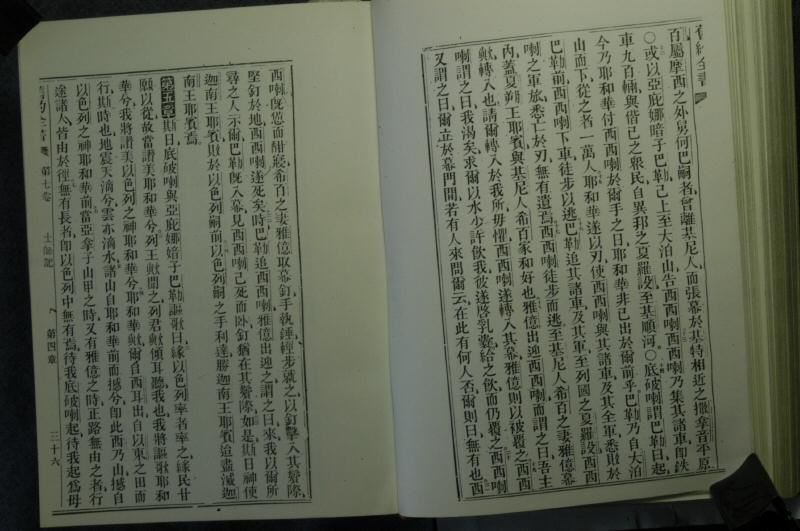 百屬摩西之外舅何巴嗣者曾離基尼人而張幕於基特相近之撒拿音平原
○或以亞庇娜暗子巴勒己上至大泊山告西西喇西西喇乃集其諸車即鉄
車九百輛與偕己之眾民自異邦之夏羅設至基順河○底破喇謂巴勒曰起
今乃耶和華付西西喇於爾手之日耶和華非已出於爾前乎巴勒乃自大泊
山而下從之者一萬人耶和華遂以刃使西西喇與其諸車及其全軍悉敗於
巴勒前西西喇下車徒步以逃巴勒追其諸車及其軍至列國之夏羅設西西
喇之軍旅悉亡於刃無有遺焉西西喇徒步而逃至基尼人希百之妻雅億幕
內蓋夏朔王耶賓與基尼人希百家和好也雅億出迎西西喇而謂之曰吾主
歟轉入也請爾轉入於我所毋懼西西喇遂轉入其幕雅億則以被覆之西西
喇謂之曰我渴矣求爾以水少許飲我彼遂啓乳囊給之飲而仍覆之西西喇
又謂之曰爾立於幕門間若有人來問爾云在此有何人否爾則曰無有也西
西喇旣憊而酣寢希百之妻雅億取幕釘手執錘輕步就之以釘擊入其鬢際
堅釘於地西西喇遂死矣時巴勒追西西喇雅億出迎之謂之曰來我以爾所
尋之人示爾巴勒旣入幕見西西喇已死而卧釘猶在其鬢際如是斯日神使
迦南王耶賓敗於以色列嗣前以色列嗣之手利達勝迦南王耶賓迨盡滅迦
南王耶賓焉
第五章 斯日底破喇與亞庇娜暗子巴勒謳歌曰緣以色列率者率之緣民甘
願以從故當讚美耶和華兮列王歟聞之列君歟傾耳聽我也我將謳歌耶和
華兮我將讚美以色列之神耶和華兮耶和華歟爾自西耳出自以東之田而
行斯時也地震天滴兮雲亦滴水諸山自耶和華前而撼兮即此西乃山撼自
以色列之神耶和華前當亞拿子山甲之時又有雅億之時正路無由之者行
途諸人皆由於徑無有長者即以色列中無有焉待我底破喇起待我起爲母
第七卷 士師記 第四章 二十六